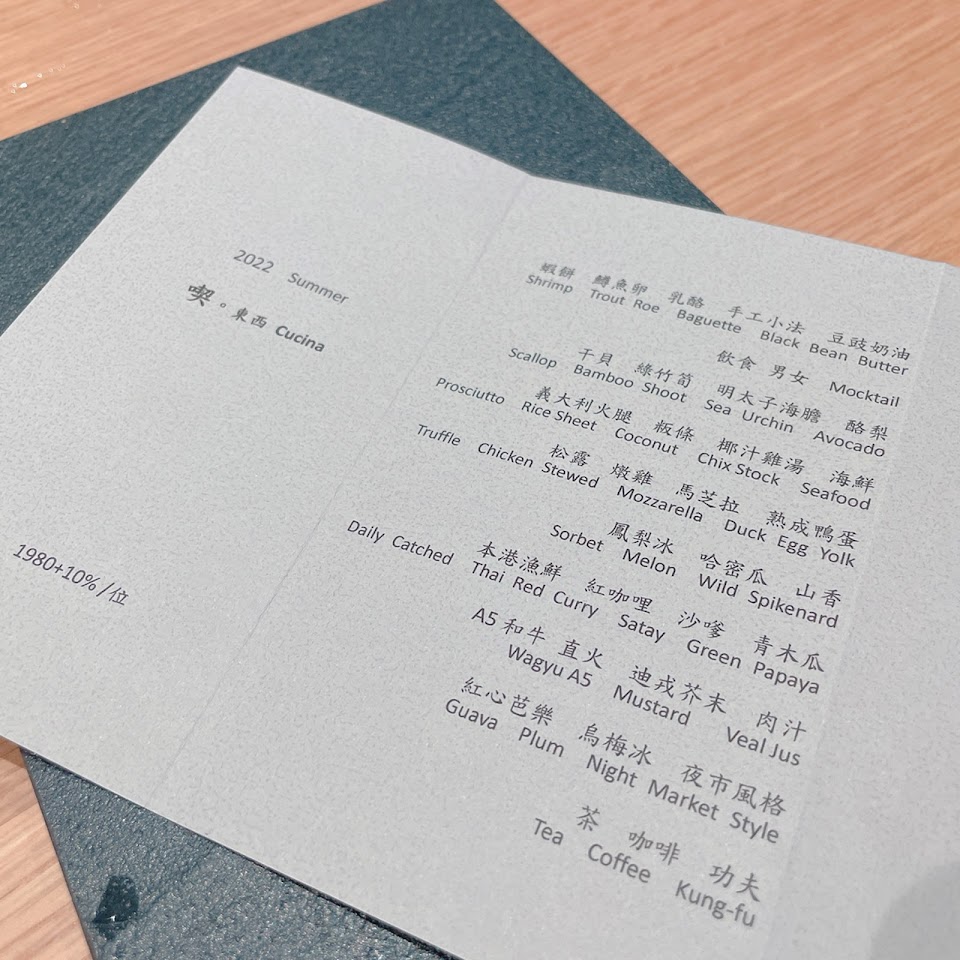 2022 Summer
喫。東西 Cucina
1980+10%/位
蝦餅 鱒魚卵 乳酪 手工小法 豆豉奶油
Shrimp Trout Roe Baguette Black Bean Butter
飲食 男女 Mocktail
干貝 綠竹筍 明太子海膽 酪梨
Scallop Bamboo Shoot Sea Urchin Avocado
義大利火腿 粄條 椰汁雞湯 海鮮
Prosciutto Rice Sheet Coconut Chix Stock Seafood
松露 燉雞 馬芝拉 熟成鴨蛋
Truffle Chicken Stewed Mozzarella Duck Egg Yolk
鳳梨冰 哈密瓜 山香
Sorbet Melon Wild Spikenard
本港漁鮮 紅咖哩 沙嗲 青木瓜
Daily Catched Thai Red Curry Satay Green Papaya
A5 和牛 直火 迪戎芥末 肉汁
Wagyu A5 Mustard Veal Jus
紅心芭樂 烏梅冰 夜市風格
Guava Plum Night Market Style
茶 咖啡 功夫
Tea Coffee Kung-fu